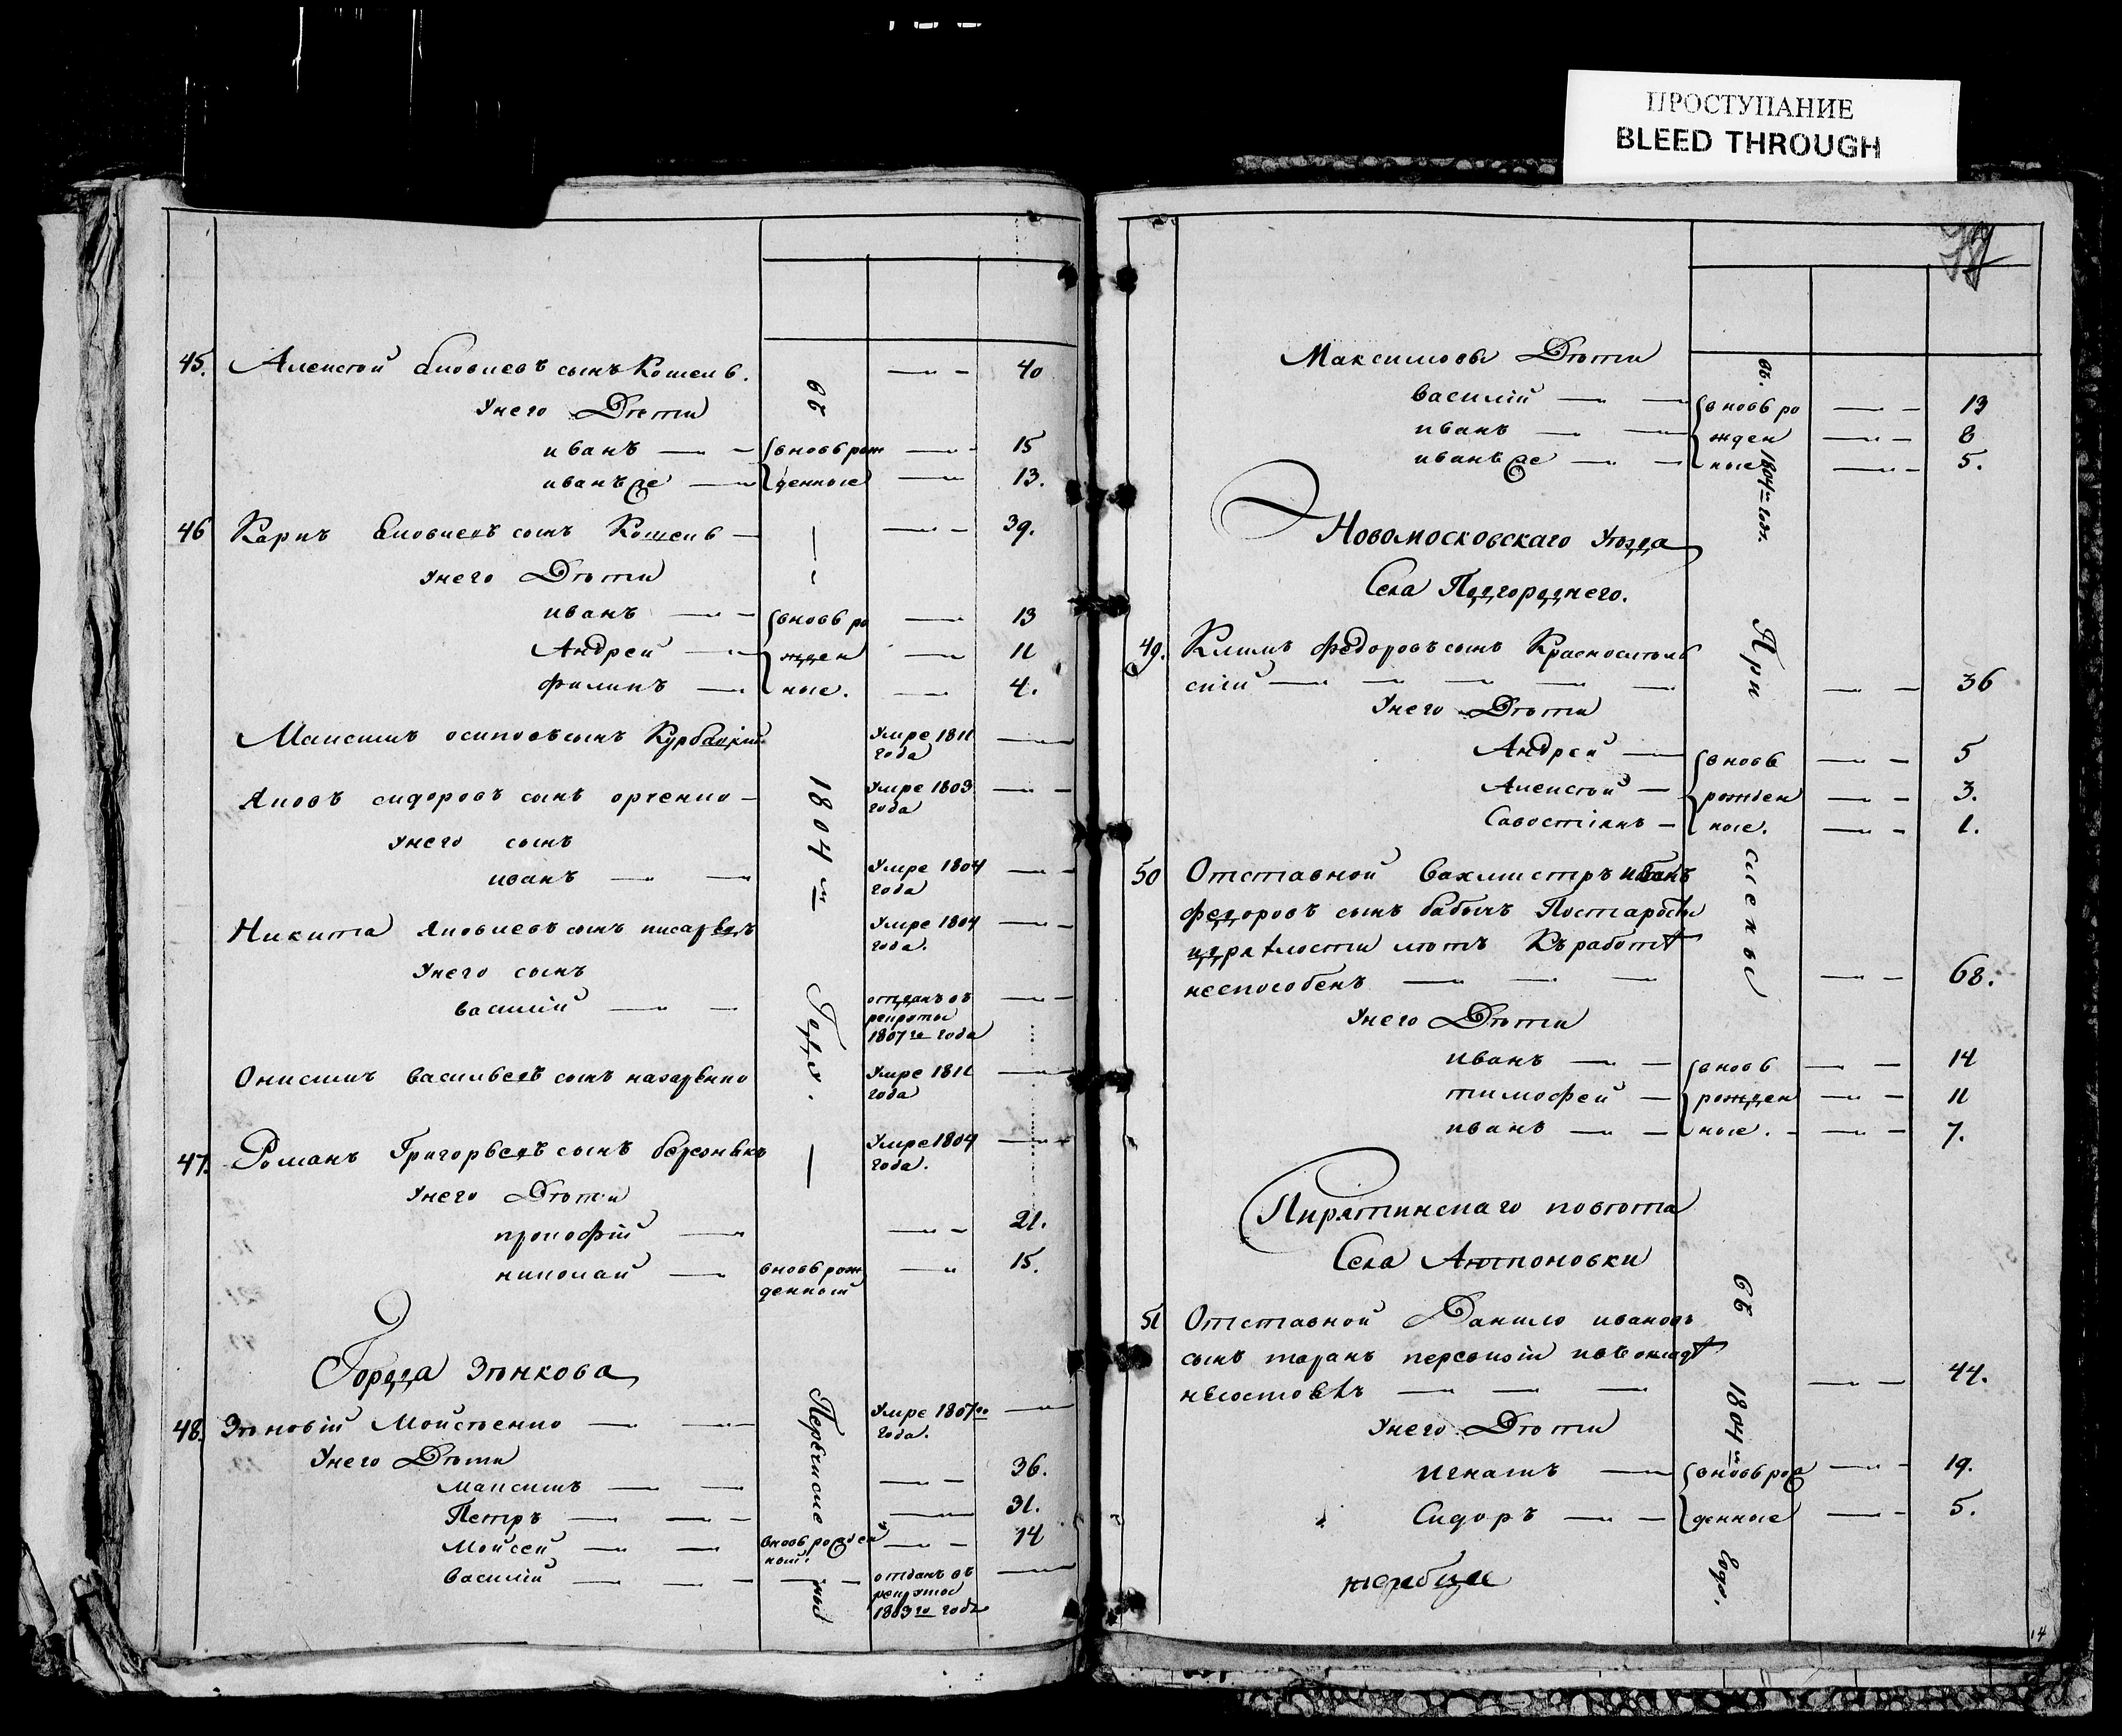 ПРОСТУПАНИЕ
BLEED THROUGH
45. Алексей Яковлев сынъ Кошель. — 40
Унего Дети
иванъ — вновь рож — 15
иванъ же — денные — 13.
46 Карпъ Яковлевъ сынъ Кошель — 39.
унего Дети
иванъ — вновь ро — 13
Андрей — жден — 11
филипъ — ные. — 4.
Максимъ осиповъ сынъ Умре 1811 —
года
Яковъ сидоровъ сынъ Умре 1809 —
года
унего сынъ
иванъ — Умре 1804 —
года
Никита Яковлевъ сынъ Умре 1804 —
года.
Унего сынъ
василий — отданъ въ —
рекруты
1807го года
Онисимъ васильевъ сынъ назаренко Умре 1811 —
года
47. Романъ Григорьевъ сынъ Умре 1804 —
года.
Унего Дети
прокофій — 21.
николай — вновь рож — 15.
денный
въ 1804м Году.
Города Зенкова
48. Зеновій Мойсеенко — Умре 1807го —
года.
Унего Дети
Максимъ — 36.
Петръ — 31.
Мойсей — вновь рожден — 14
ный.
василій — отданъ въ —
рекруты
1809го года
Перечисленные
Максимовы Дети
василій — вновь ро — 13
иванъ — жден — 8
иванъ же — ные — 5.
въ. 1804м год.
Новомосковскаго Уезда
Села Подгороднего.
49. Климъ федоровъ сынъ Краснокутсь
скій — 36
Унего Дети
Андрей — вновь — 5
Алексей — рожден — 3.
Савостіянъ — ные. — 1.
50 Отставной Вахмистръ иванъ
федоровъ сынъ бабычъ Постарости
идряхлости летъ Къработе
неспособенъ — 68.
Унего Дети
иванъ — вновь — 14
тимофей — рожден — 11
иванъ — ные. — 7.
При
сленые
Пирятинскаго повета
Села Антоновки
51 Отставной Данило ивановъ
сынъ таранъ окладе
несостоялъ — 44.
Унего Дети
игнатъ — вновь рож — 19.
Сидоръ — денные — 5.
въ 1804м Годе.
14